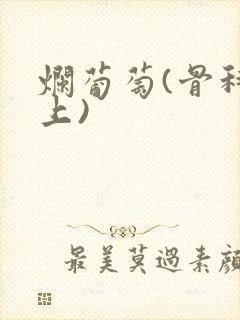 爛葡萄(骨科
上)
最美莫過素顏